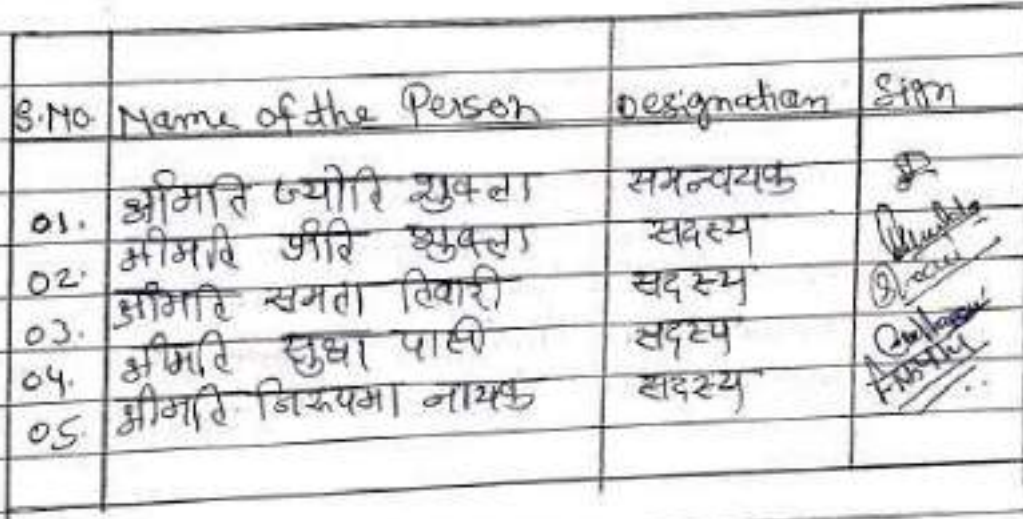 S.NO. Name of the Person Designation Sign
01. श्रीमति ज्योति शुक्ला समन्वयक
02. श्रीमति प्रीति शुक्ला सदस्य
03. श्रीमति समता तिवारी सदस्य
04. श्रीमति सुधा पासी सदस्य
05. श्रीमति निरूपमा नायक सदस्य